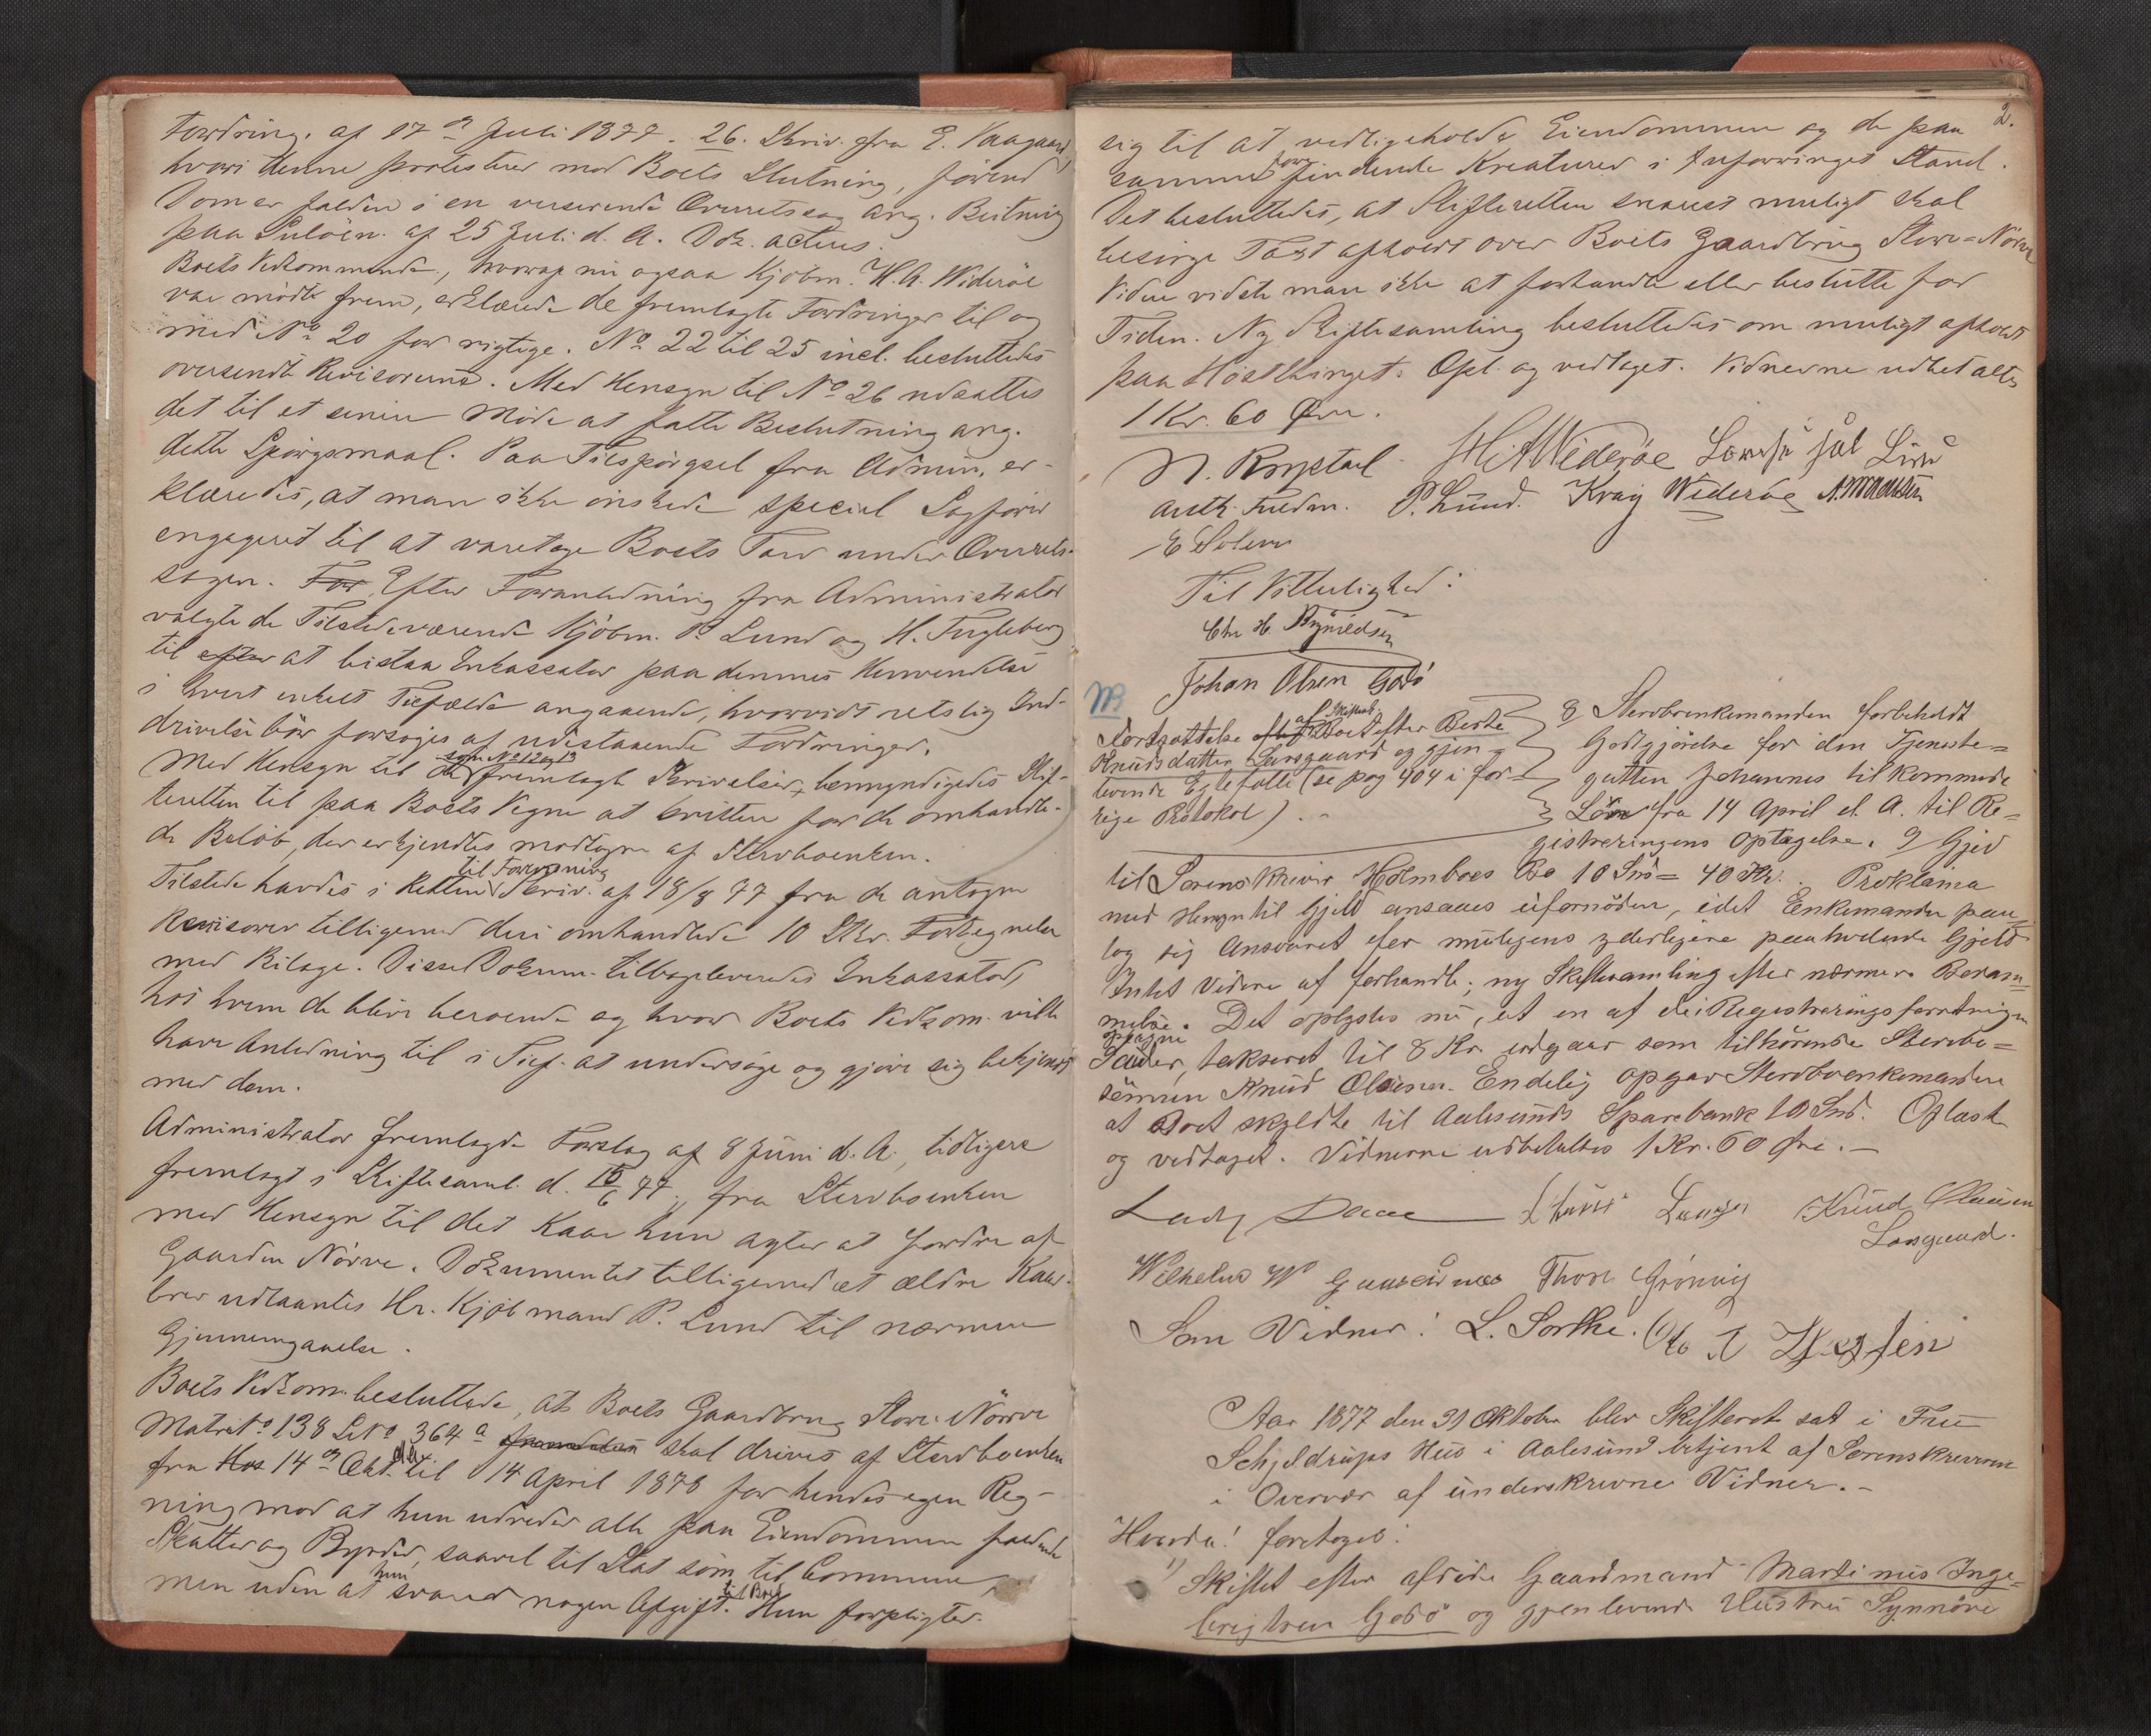 Fordring. af 17de Juli 1877. 26. Skriv. fra E. Vaagaard,
hvori denne protesterer mod Boets Slutning, førend
Dom er falden i en verserende Overretssag ang. Beitning
paa Suløen. af 25 Juli d. A. Dok. acteres.
Boets Vedkommende, hvoraf nu ogsaa Kjøbm. H. A. Widerøe
var mødt frem, erklærede de fremlagte Fordringer til og
med No 20 for rigtige. No 22 til 25 incl. besluttedes
oversendt Revisorerne. Med Hensyn til No 26 udsattes
det til et senere Møde at fatte Beslutning ang.
dette Spørgsmaal. Paa Tilspørgsel fra Admin. er-
klæredes, at man ikke ønskede special Sagfører
engageret til at varetage Boets Tarv under Overrets-
sagen. For Efter Foranledning fra Administrator
valgte de Tilstedeværende Kjøbm. P. Lund og H. Fugleberg
til efter at bistaa Inkassator paa dennes Henvendelse
i hvert enkelt Tilfælde angaaende, hvorvidt retslig Ind-
drivelse bør forsøges af udestaaende Fordringer.
Med Hensyn til de som No 12 og 13 fremlagte Skrivelser, bemyndigedes Skif-
teretten til paa Boets Vegne at kvittere for de omhandle-
de Beløb, der erkjendtes modtagne af Stervboenken.
Tilstede havdes i Retten til Forevisning Skriv. af 18/8 77 fra de antagne
Revisorer tilligemed deri omhandlede 10 Stkr. Fortegnelser
med Bilage. Disse Dokum. tilbageleveredes Inkassator,
hos hvem de blive beroende og hvor Boets Vedkom. ville
have Anledning til i Tilf. at undersøge og gjøre sig bekjendt
med dem.
Administrator fremlagde Forslag af 8 Juni d. A., tidligere
fremlagt i Skiftesaml. d. 16/6 77, fra Stervboenken
med Hensyn til det Kaar hun agter at fordre af
Gaarden Nørve. Dokumentet tilligemed et ældre Kaar-
brev udlaantes Hr. Kjøbmand P. Lund til nærmere
Gjennemgaaelse.
Boets Vedkom. besluttede, at Boets Gaardbrug Store-Nørve
Matr. No 138 L.No 364a fremdeles skal drives af Stervboenken
fra Hos 14de Okt. d.A. til 14 April 1878 for hendes egen Reg-
ning mod at hun udreder alle paa Eiendommen faldende
Skatter og Byrder, saavel til Stat som til Commune,
men uden at hun svarer nogen Afgift til Boet. Hun forpligter
2.
sig til at vedligeholde Eiendommen og de paa
samme forefindende Kreaturer i uforringet Stand.
Det besluttedes, at Skifteretten snarest muligt skal
besørge Taxt afholdt over Boets Gaardbrug Store-Nørve
Videre vidste man ikke at forhandle eller beslutte for
Tiden. Ny Skiftesamling besluttedes om muligt afholdt
paa Høstthinget. Opl. og vedtaget. Vidnerne udbetaltes
1 Kr. 60 Øre.
N. Rystad H. A. Widerøe
auth. Fuldm. P. Lund. Krag Widerøe
E Solem
Til Vitterlighed:
Chr H Rynildsen
Johan Olsen Godø
NB
Fortsættelse efter af Skiftet Boet efter Berte
Knudsdatter Larsgaard og gjen-
levende Egtefælle (se pag 404 i for-
rige Protokol).
8, Stervboenkemanden forbeholdt
Godtgjørelse for den Tjeneste-
gutten Johannes tilkommende
Løn fra 14 April d. A. til Re-
gistreringens Optagelse. 9, Gjæld
til Sorenskriver Holmboes Bo 10 Spd = 40 Kr. Proklama
med Hensyn til Gjæld ansaaes ufornøden, idet Enkemanden paa-
tog sig Ansvaret for muligens yderligere paahvilende Gjæld
Intet videre at forhandle; ny Skiftesamling efter nærmere Beram-
melse. Det oplystes nu, at en af de i Registreringsforretningen
optagne
Sauer, takseret til 8 Kr. udgaar som tilhørende Stervbo-
sønnen Knud Olsen. Endelig opgav Stervboenkemanden
at Boet skyldte til Aalesunds Sparebank 10 Spd. Oplæst
og vedtaget. Vidnerne udbetaltes 1 Kr. 60 Øre.
Ludv Daae Knud Olausen
Larsgaard.
Wilhelm W Gaaseidnes Thore Grønvig
Som Vidner: L. Sorthe.
Aar 1877 den 31 Oktober blev Skifteret sat i Fru
Schjeldrups Hus i Aalesund betjent af Sorenskriveren
i Overvær af underskrevne Vidner.
Hvorda! foretoges:
1) Skiftet efter afdøde Gaardmand Martinus Inge-
brigtsen Godø og gjenlevende Hustru Synnøve